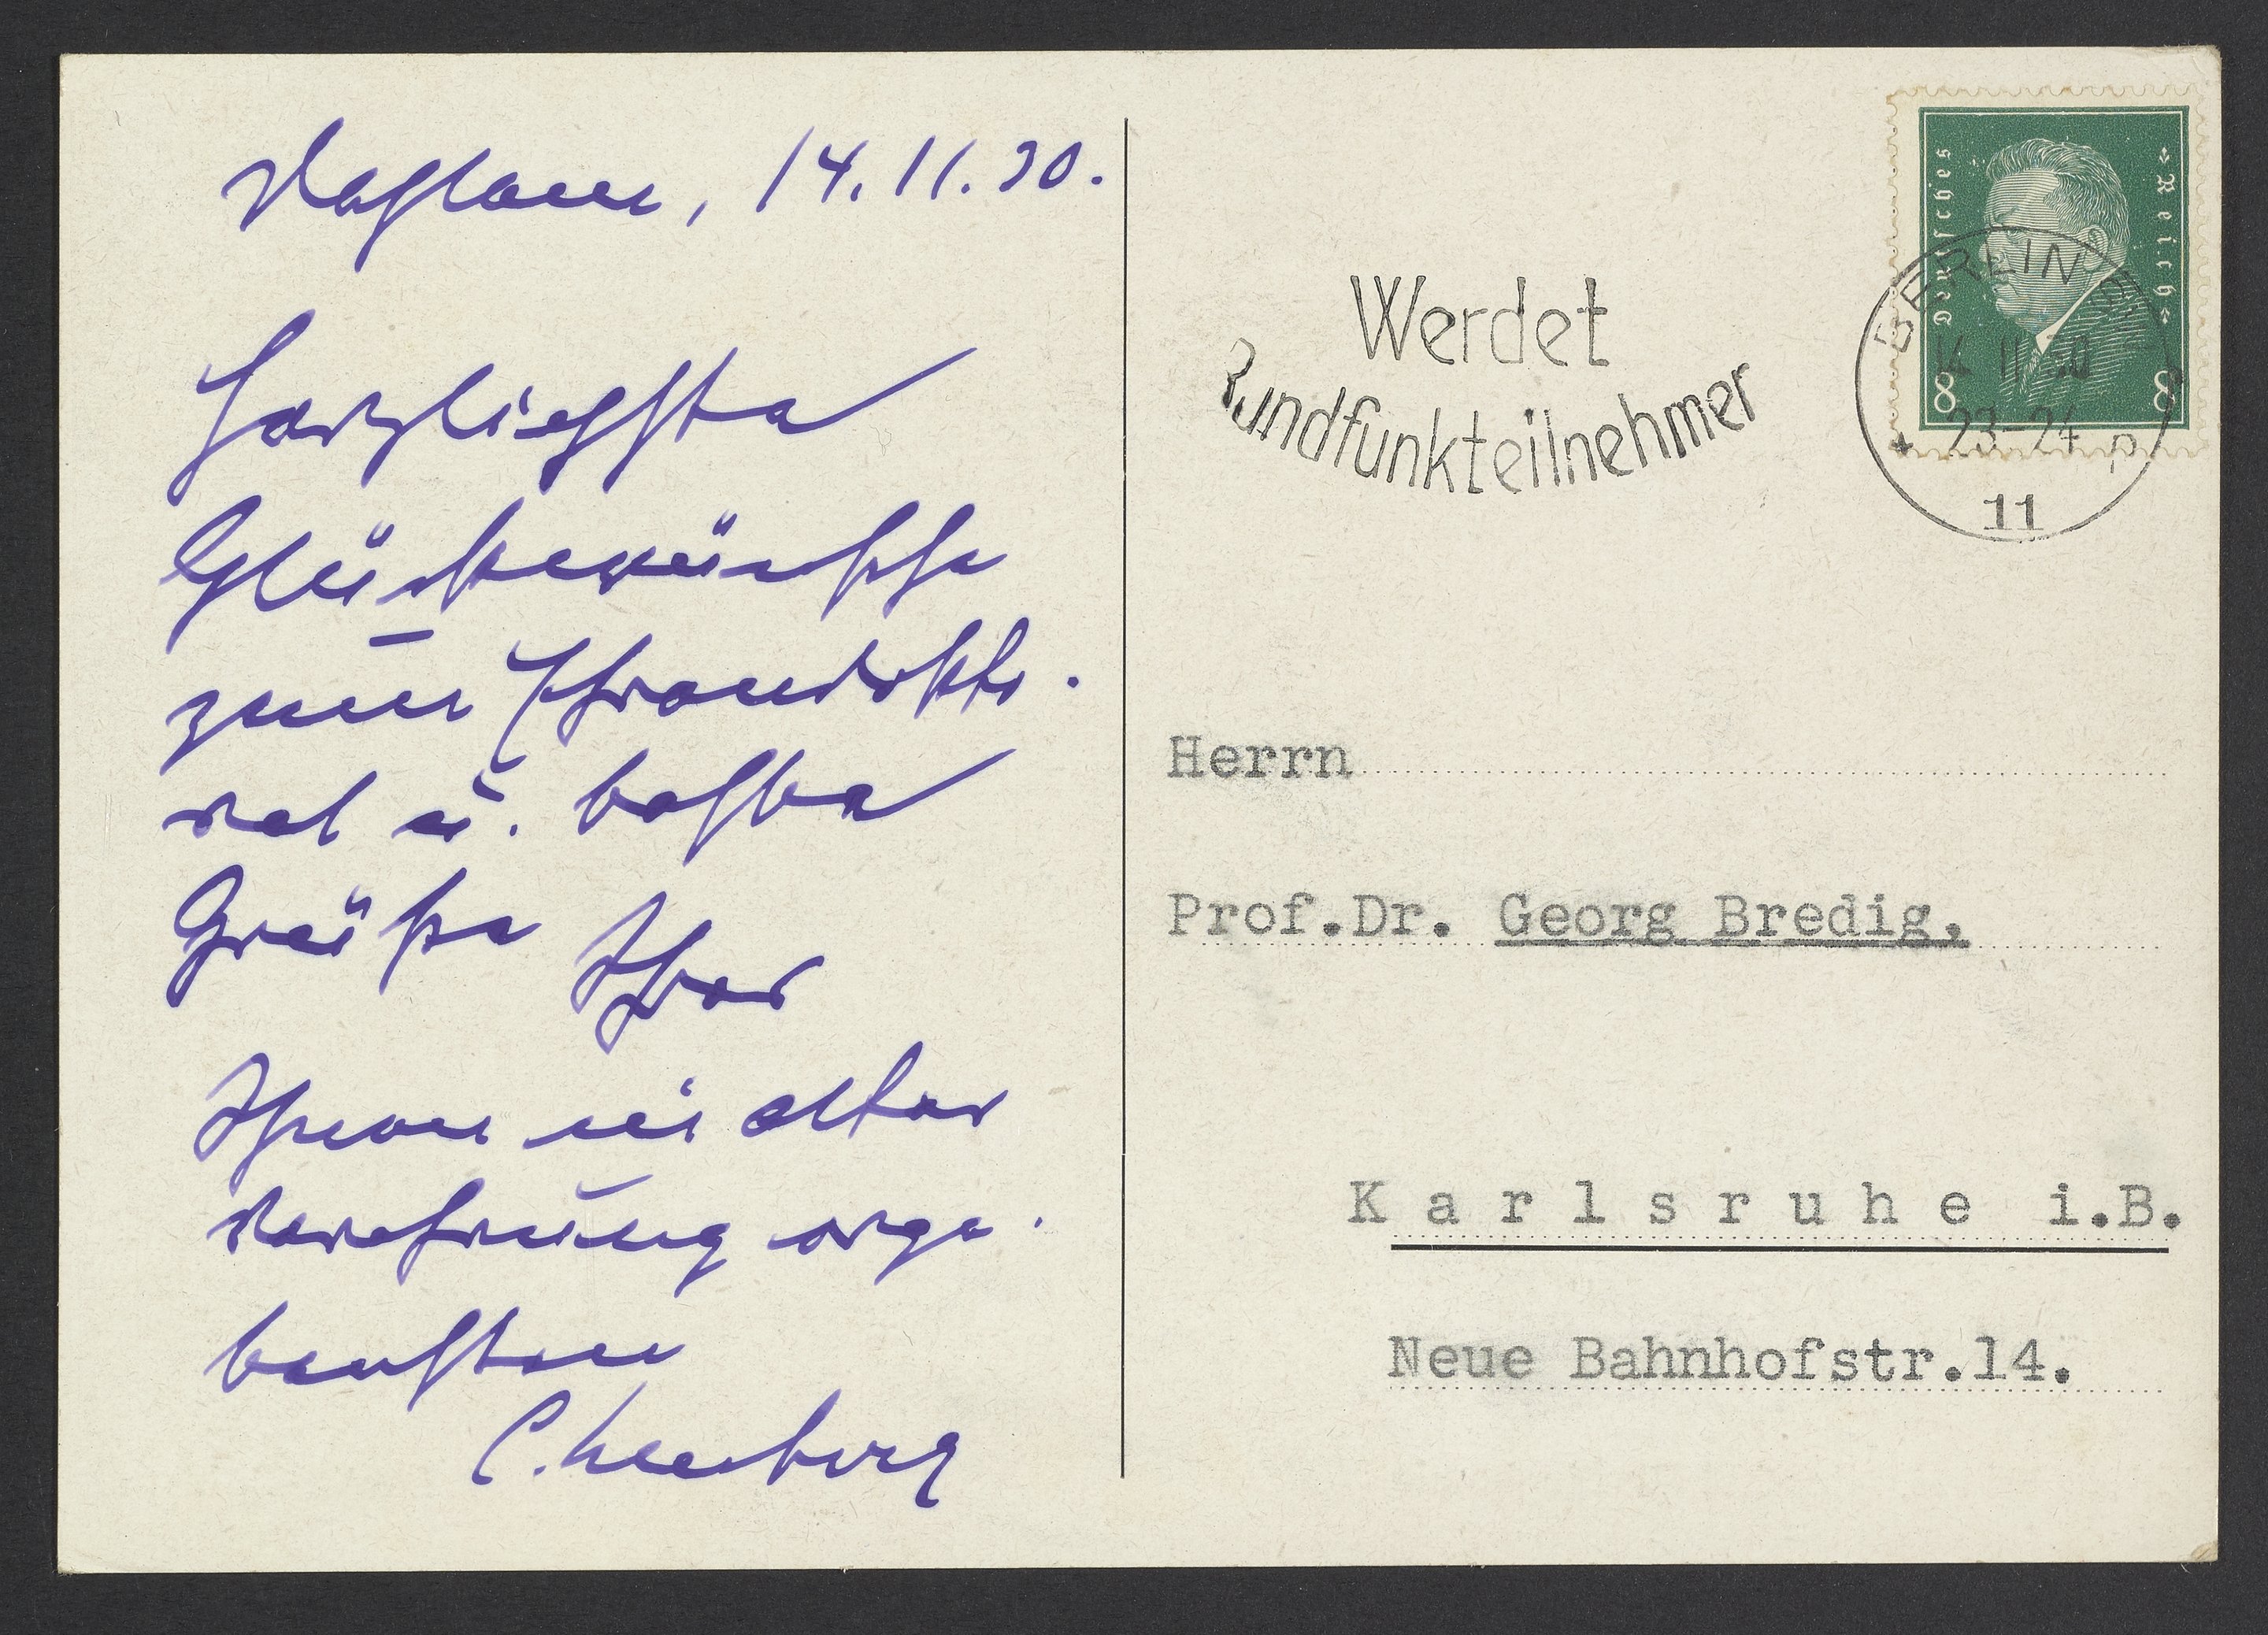 Dahlem, 14.11.30.
Herzlichste
Glückwünsche
zum Ehrendokto-
rat u. beste
Grüße Ihres
Ihnen in alter
Verehrung erge-
bensten
C. Neuberg
Deutsches Reich
8 8
BERLIN
14 11 30
23-24
11
Werdet
Rundfunkteilnehmer
Herrn
Prof.Dr. Georg Bredig,
Karlsruhe i.B.
Neue Bahnhofstr.14.